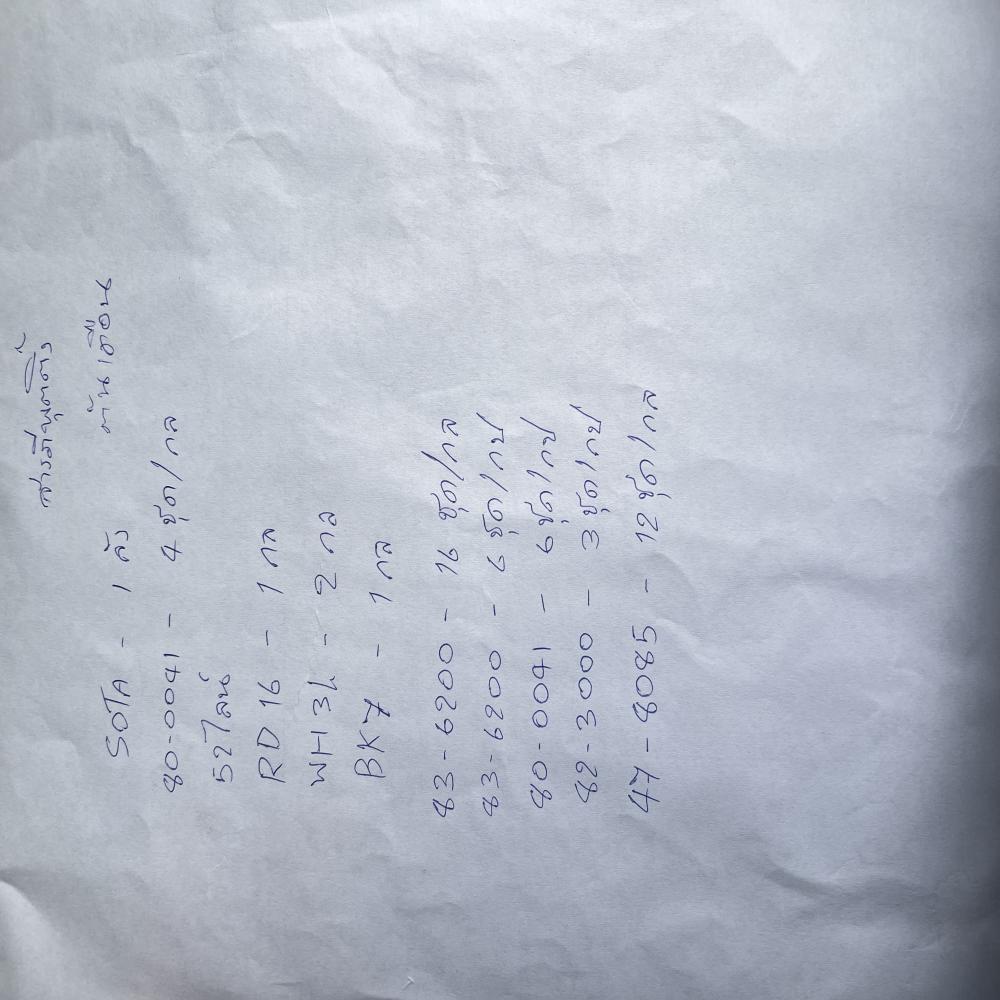 SOTA - 1 ลัง ต้นเดือน
80-0041 - 4 ชุด/กล
52ไลน์
RD 16 - 1 กล
WH 3L - 2 กล
BK7 - 1 กล
83-6200 - 16 ชุด/กล
83-6200 - 6 ชุด/กป
80-0041 - 6 ชุด/กป
82-3000 - 3 ชุด/กป
47-8085 - 12 ชุด/กล